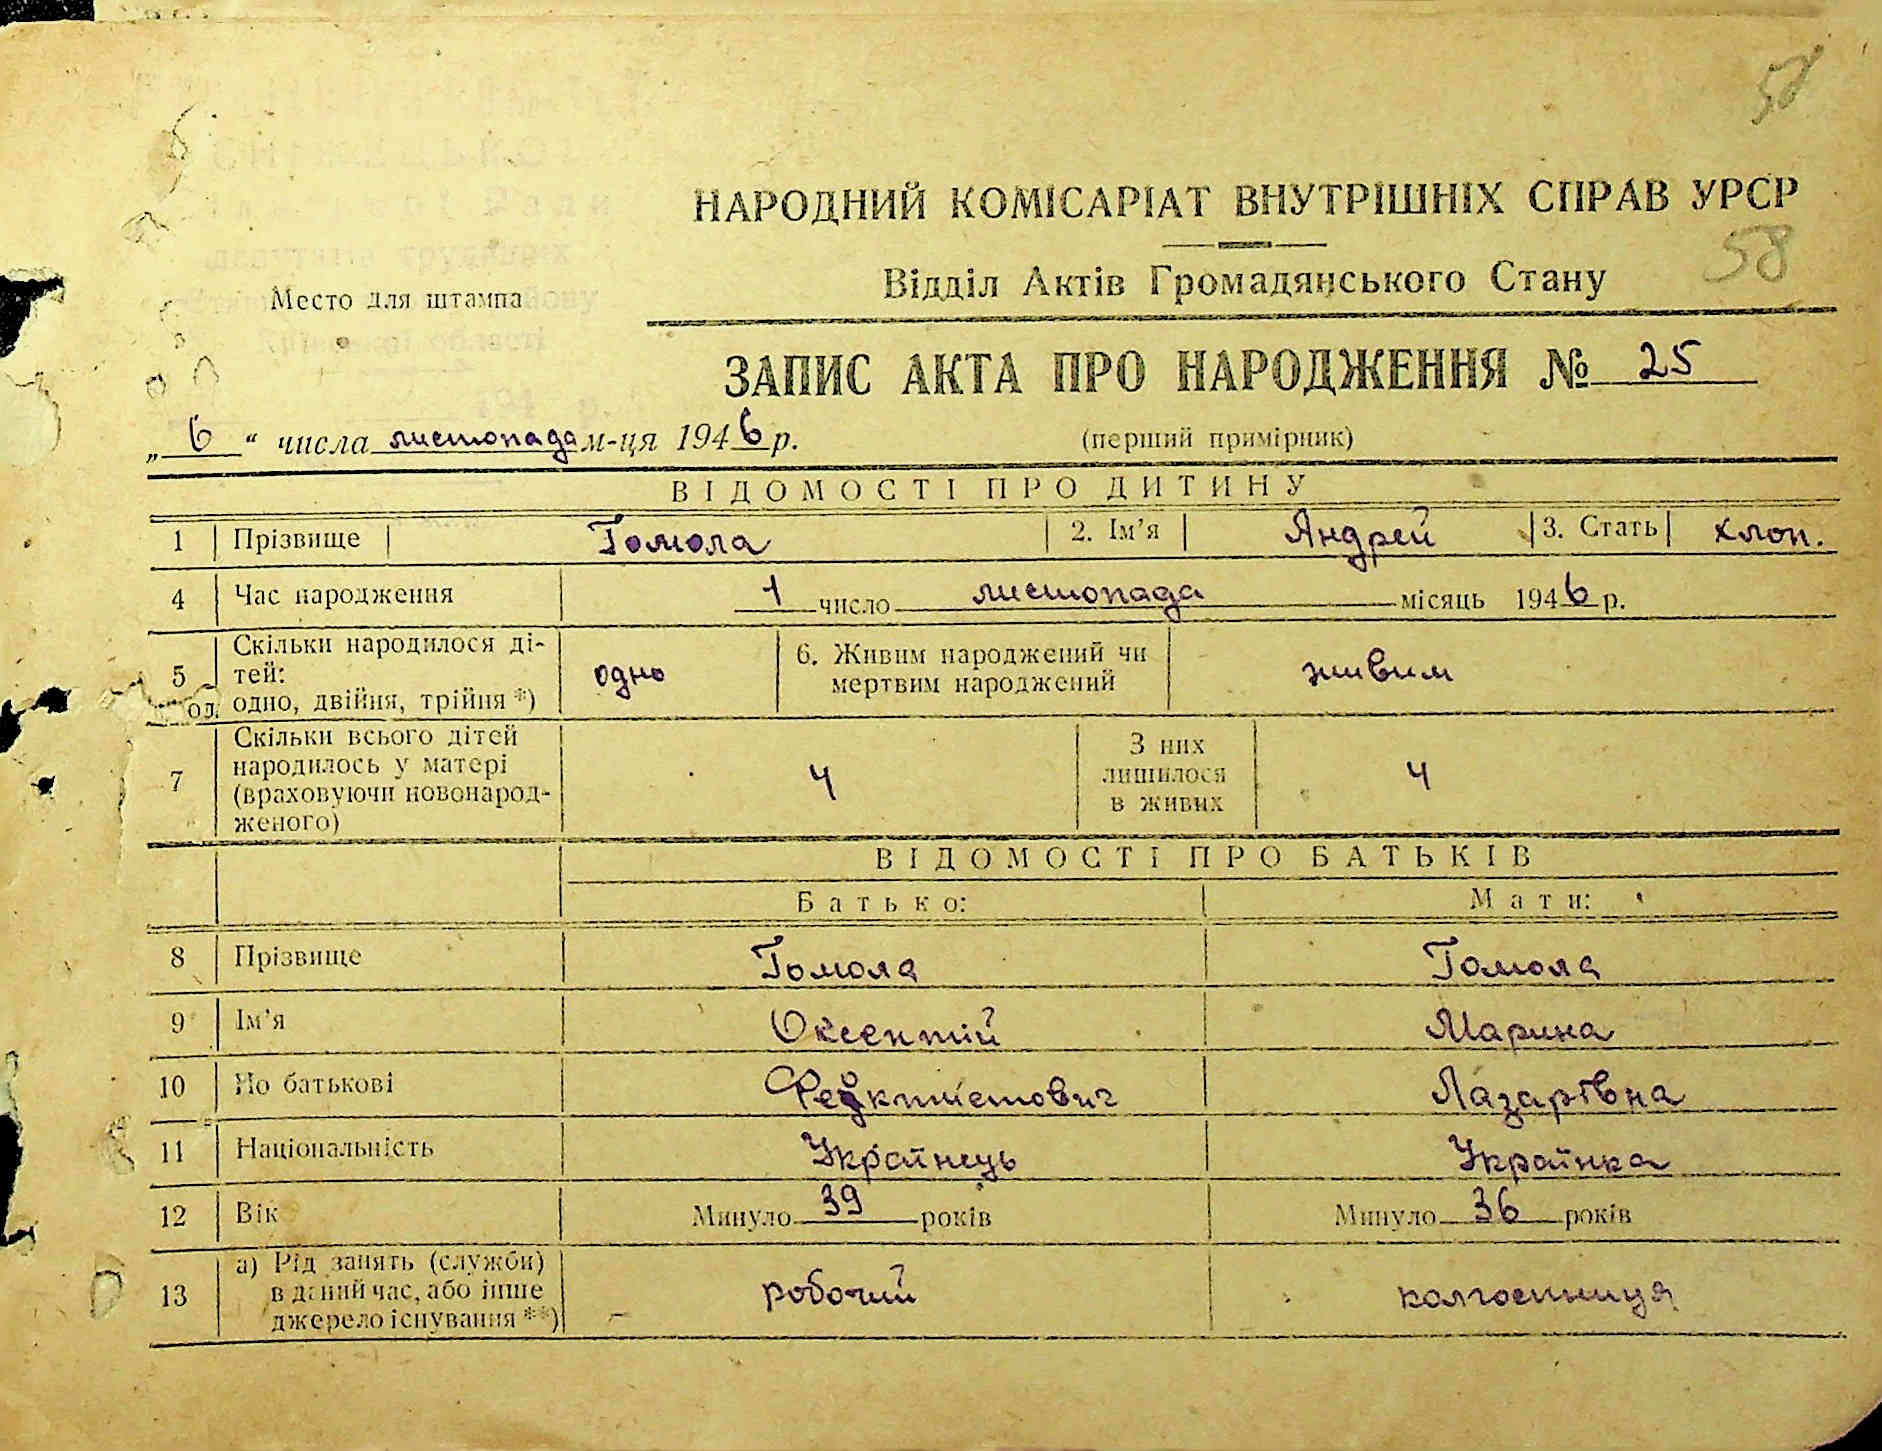 58
НАРОДНИЙ КОМІСАРІАТ ВНУТРІШНІХ СПРАВ УРСР
58
Відділ Актів Громадянського Стану
Место для штампа
ЗАПИС АКТА ПРО НАРОДЖЕННЯ № 25
„ 6 “ числа листопада м-ця 1946 р. (перший примірник)
ВІДОМОСТІ ПРО ДИТИНУ
1 Прізвище Гомола 2. Ім’я Андрей 3. Стать хлоп.
4 Час народження 1 число листопада місяць 1946 р.
5 Скільки народилося ді-
тей:
одно, двійня, трійня *) одно 6. Живим народжений чи
мертвим народжений живим
7 Скільки всього дітей
народилось у матері
(враховуючи новонарод-
женого) 4 З них
лишилося
в живих 4
ВІДОМОСТІ ПРО БАТЬКІВ
Батько: Мати:
8 Прізвище Гомола Гомола
9 Ім’я Оксентій Марина
10 По батькові Феоктистович Лазарівна
11 Національність Українець Українка
12 Вік Минуло 39 років Минуло 36 років
13 а) Рід занять (служби)
в даний час, або інше
джерело існування **) робочий колгоспниця